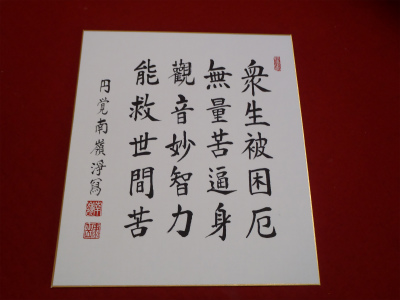 衆生被困厄
無量苦逼身
觀音妙智力
能救世間苦
円覚南嶺淨寫